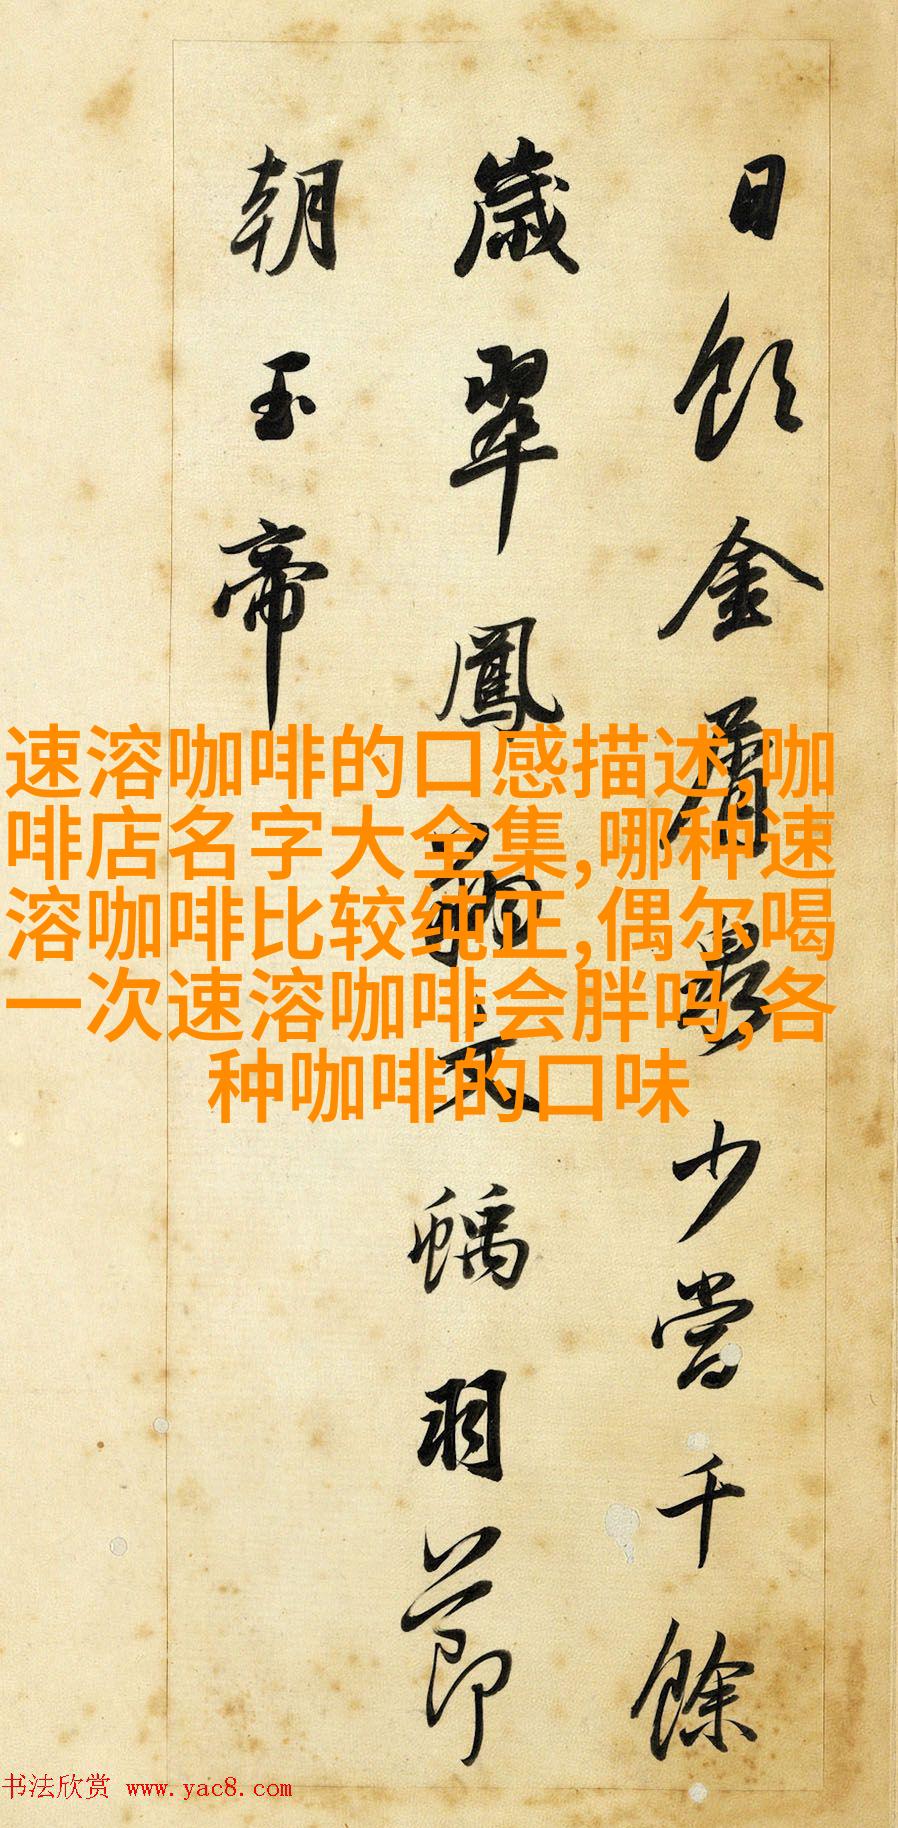 日飲金屑泉少當千餘
歲翠鳳文螭羽節
朝玉帝
速溶咖啡的口感描述,咖
啡店名字大全集,哪种速
溶咖啡比较纯正,偶尔喝
一次速溶咖啡会胖吗,各
种咖啡的口味
书法欣赏 www.yac8.com